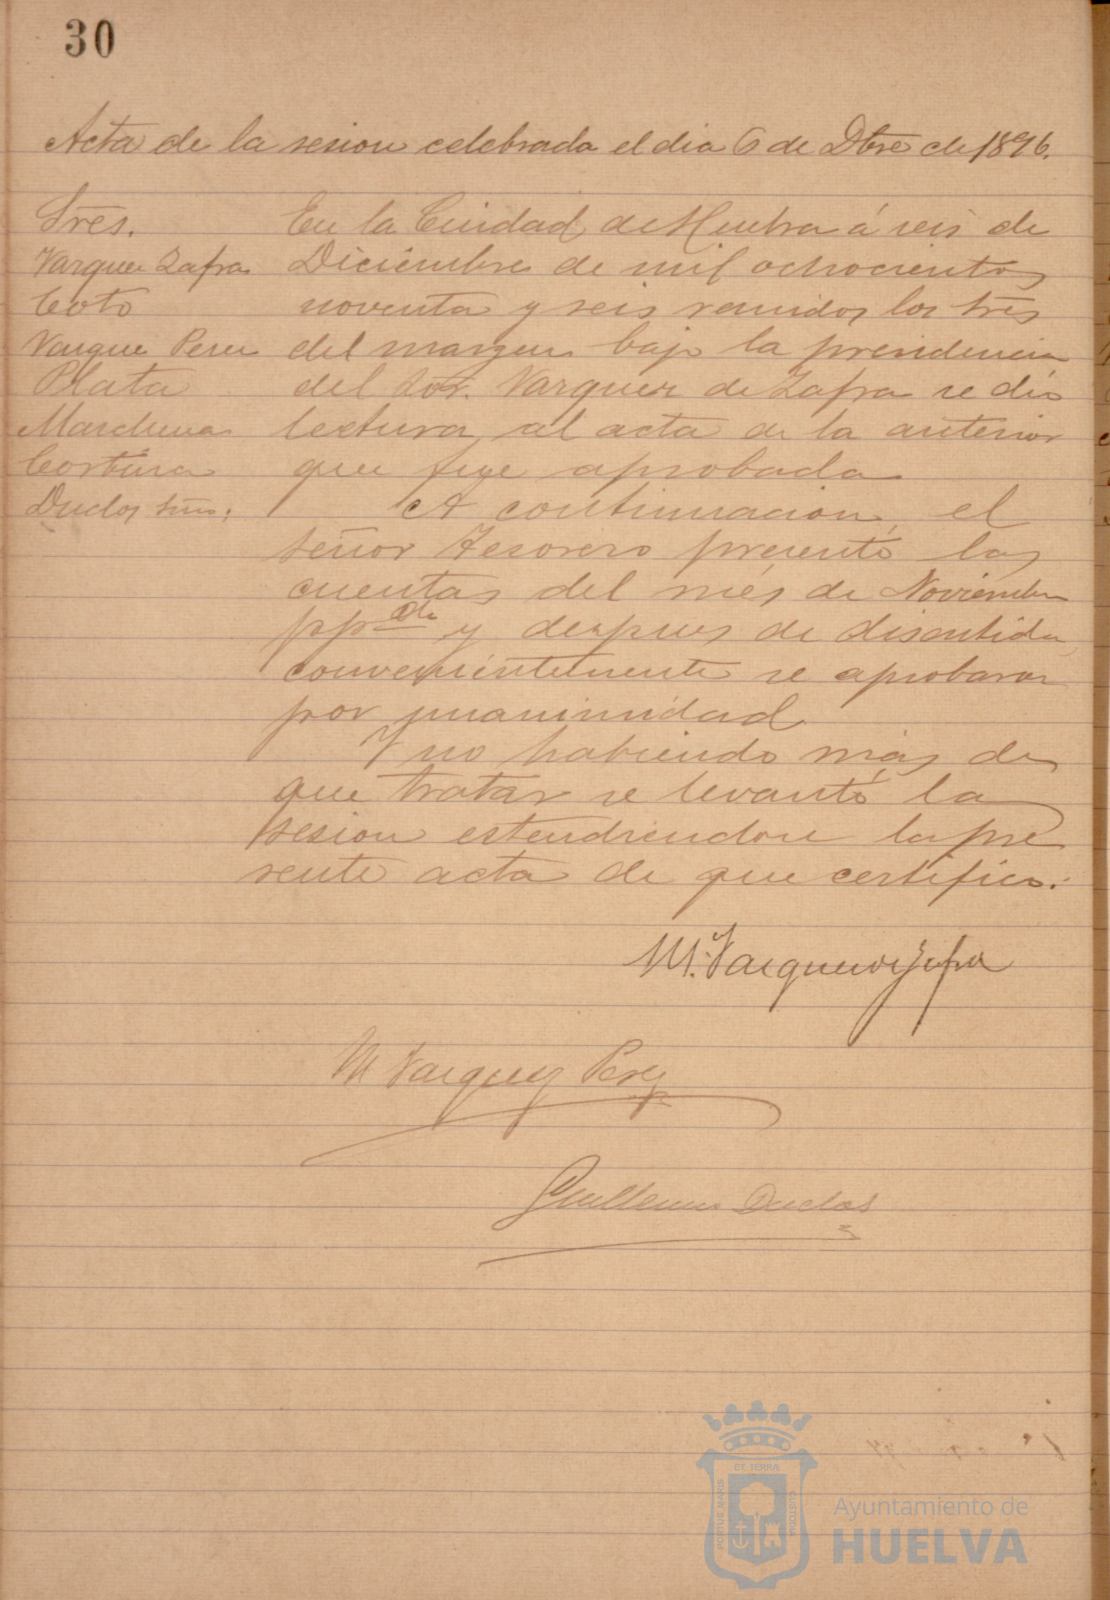 30
Acta de la sesion celebrada el dia 6 de Dbre de 1896.
Sres.
Vazquez Zafra
Coto
Vazque Perez
Plata
Marchena
Cortina
Duclos Srio.
En la Ciudad de Huelva á seis de
Diciembre de mil ochocientos
noventa y seis reunidos los Sres
del margen bajo la presidencia
del Sor. Vazquez de Zafra se dió
lectura al acta de la anterior
que fue aprobada
A continuacion, el
señor Tesorero presentó las
cuentas del més de Noviembre
pp.do y despues de discutidas
convenientemente se aprobaron
por unanimidad
Y no habiendo más de
que tratar se levantó la
sesion estendiendose la pre
sente acta de que certifico.
M. Vazquez de Zafra
M Vazquez Perez
Guillermo Duclos
PORTUS MARIS ET TERRA CUSTODIA
Ayuntamiento de
HUELVA